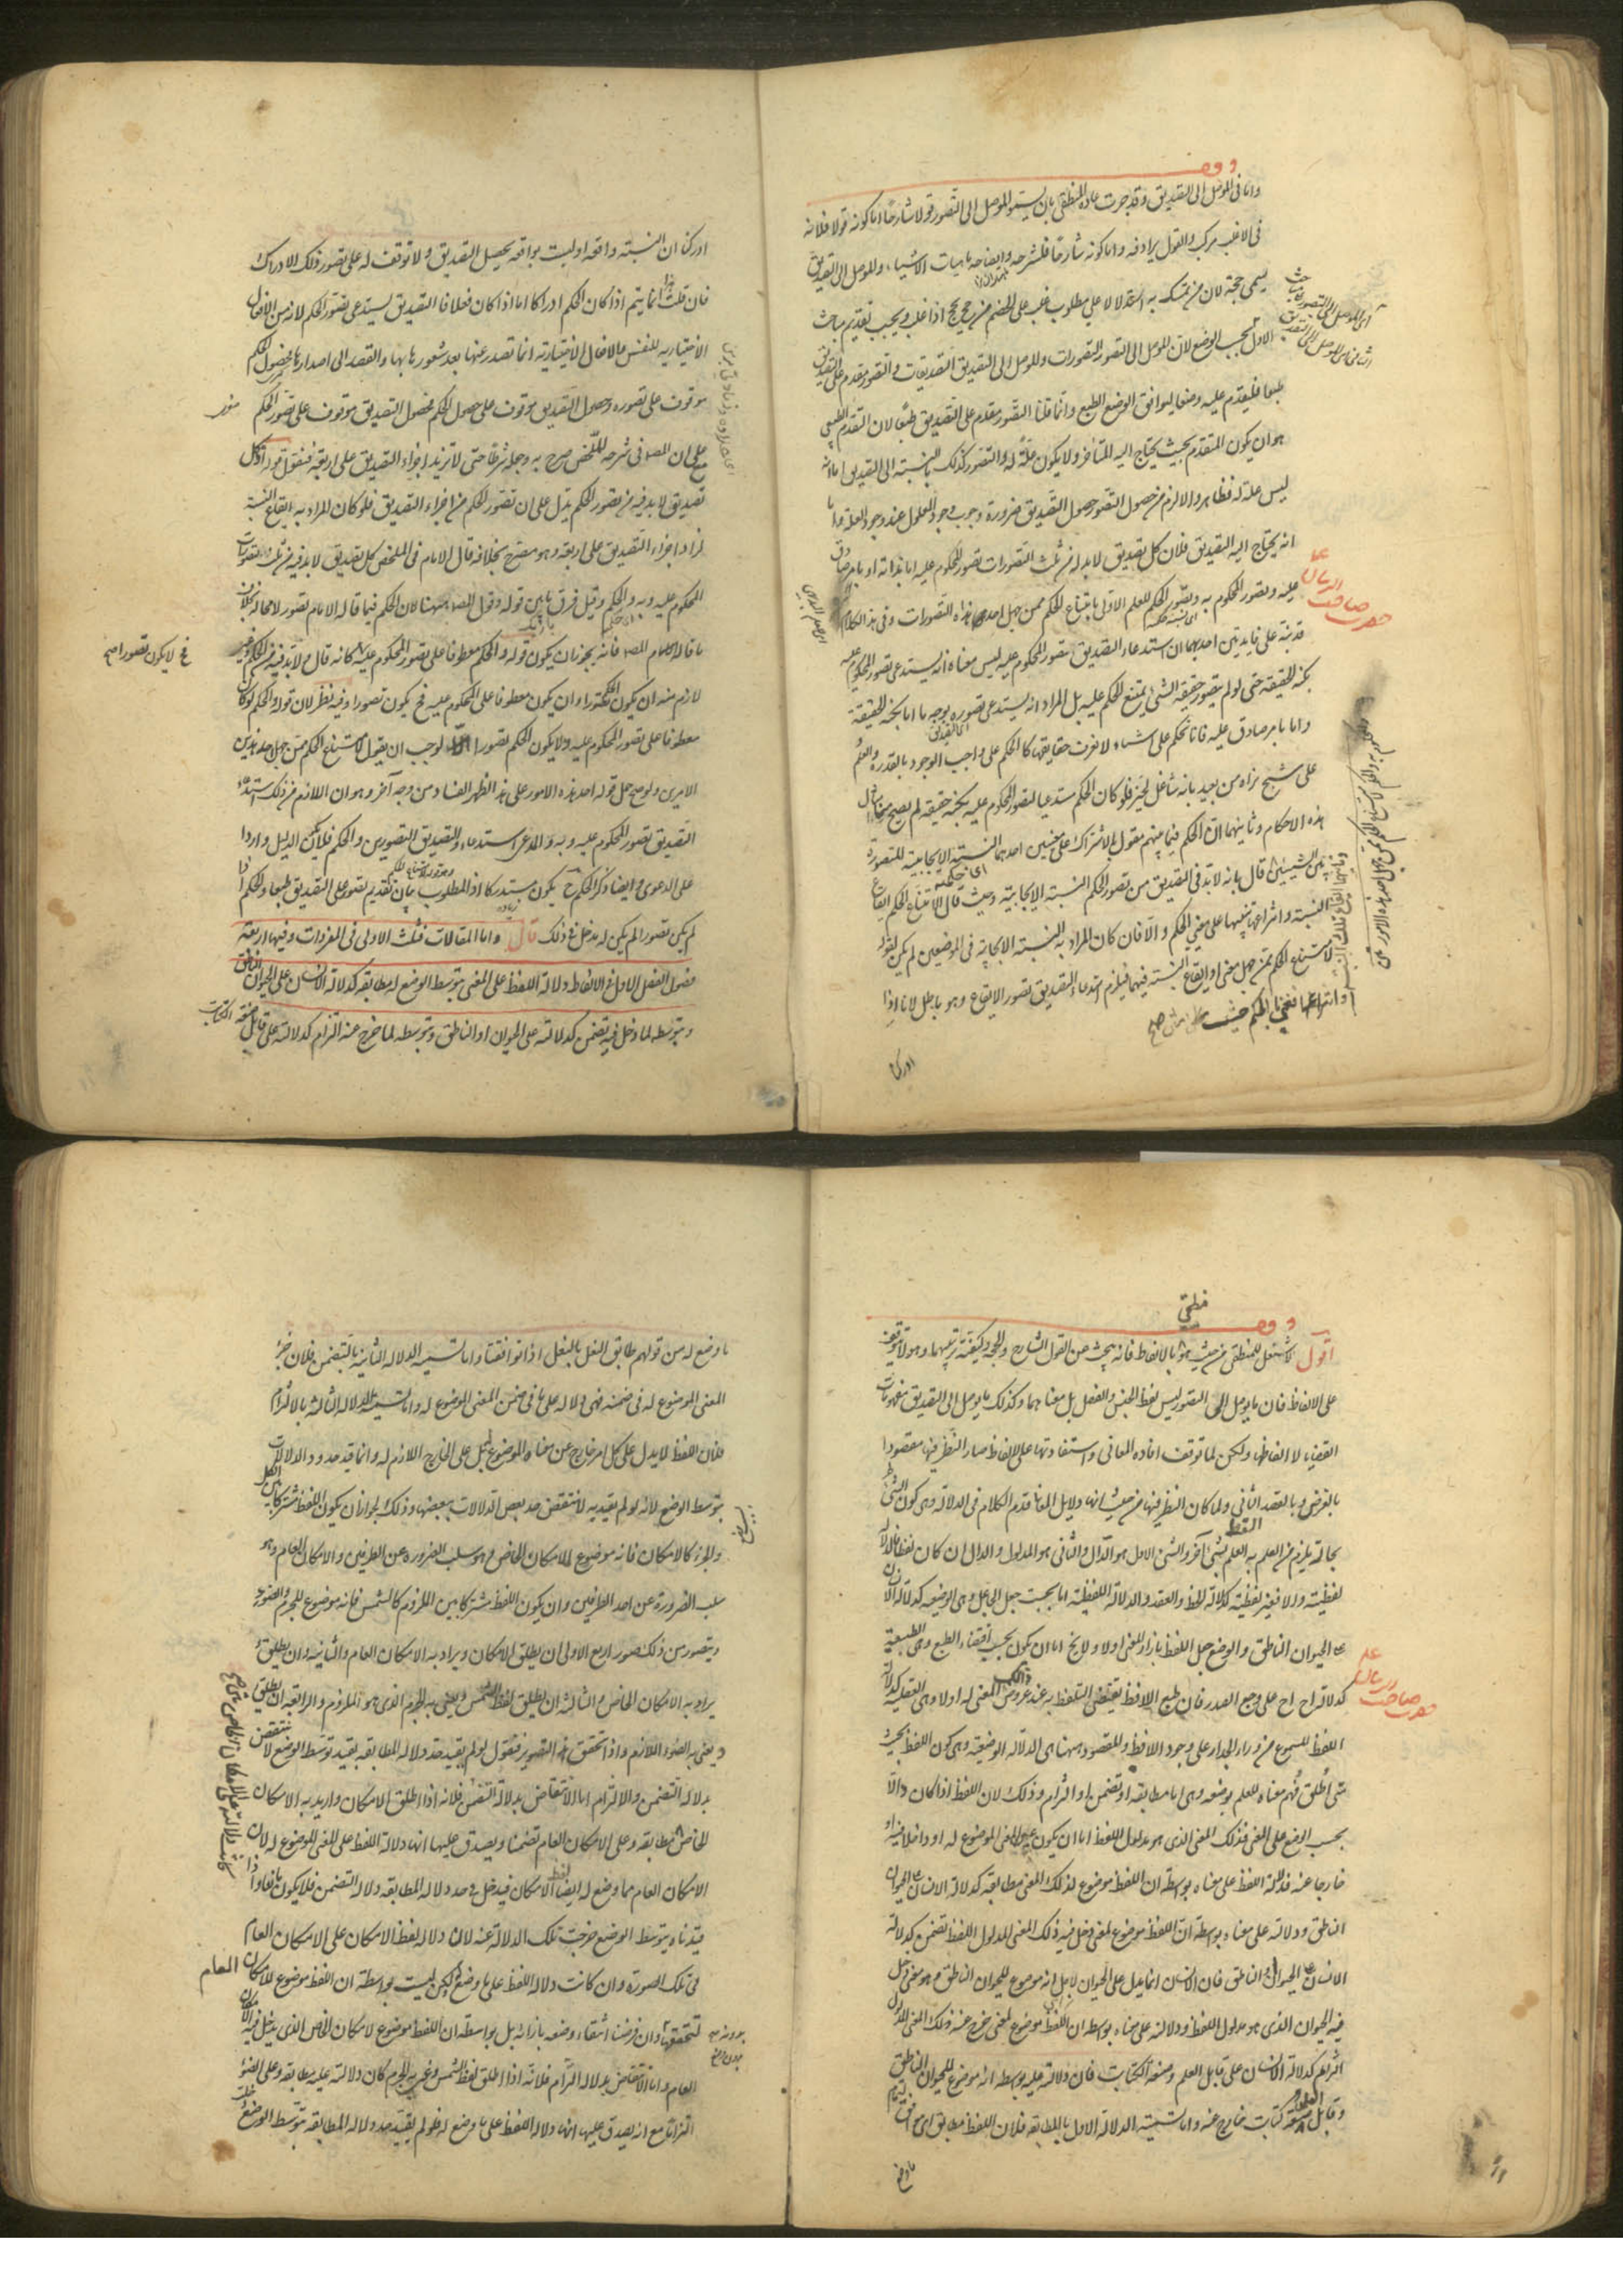 واما فى الموصل الى التصديق وقد جرت عادة المنطقى بان يسمو الموصل الى التصور قولا شارحا اما كونه قولا فلانه
فى الاغلب مركب والقول يرادفه واما كونه شارحا فلشرحه وايضاحه ماهيات الاشياء والموصل الى التصديق
يسمى حجة لان من تمسك به استدلالا على مطلوب غلب على الخصم من حج يحج اذا غلب ويجب تقديم مباحث
الاول بحسب الوضع لان الموصل الى التصور التصورات والموصل الى التصديق التصديقات والتصور مقدم على التصديق
طبعا فليقدم عليه وضعا ليوافق الوضع الطبع وانما قلنا التصور مقدم على التصديق طبعا لان التقدم الطبعى
هو ان يكون المتقدم بحيث يحتاج اليه المتاخر ولا يكون علة له والتصور كذلك بالنسبة الى التصديق اما انه
ليس علة له فظاهر والا لزم من حصول التصور حصول التصديق ضرورة وجوب وجود المعلول عند وجود العلة واما
انه يحتاج اليه التصديق فلان كل تصديق لا بد له من ثلث تصورات تصور المحكوم عليه اما بذاته او بامر صادق
عليه وتصور المحكوم به وتصور الحكم للعلم الاول بامتناع الحكم ممن جهل احد هذه التصورات وفى هذا الكلام
قد نبه على فايدتين احديهما ان استدعاء التصديق تصور المحكوم عليه ليس معناه انه يستدعى تصور المحكوم عليه
بكنه الحقيقة حتى لو لم يتصور حقيقة الشئ يمتنع الحكم عليه بل المراد انه يستدعى تصوره بوجه ما اما بكنه الحقيقة
واما بامر صادق عليه فانا نحكم على اشياء لا نعرف حقايقها كما نحكم على واجب الوجود بالقدرة والعلم
على شبح نراه من بعيد بانه شاغل لحيز فلو كان الحكم مستدعيا لتصور المحكوم عليه بكنه حقيقة لم يصح منا امثال
هذه الاحكام وثانيهما ان الحكم فيما بينهم مقول بالاشتراك على معنيين احدهما النسبة الايجابية المتصورة
بين الشيئين قال بانه لا بد فى التصديق من تصور الحكم النسبة الايجابية وحيث قال لامتناع الحكم ايقاع
النسبة وانتزاعها تنبيها على معنى الحكم والا فان كان المراد به النسبة الايجابية فى الموضعين لم يكن لقوله
لامتناع الحكم ممن جهل معنى او ايقاع النسبة فيهما فيلزم استدعاء التصديق تصور الايقاع وهو باطل لانا اذا
ادركنا
ادركنا ان النسبة واقعة او ليست بواقعة يحصل التصديق ولا توقف له على تصور ذلك الادراك
فان قلت هذا انما يتم اذا كان الحكم ادراكا اما اذا كان فعلا فالتصديق يستدعى تصور الحكم لانه من الافعال
الاختيارية للنفس والافعال الاختيارية انما تصدر عنها بعد شعورها بها والقصد الى اصدارها فحصول الحكم
موقوف على تصوره وحصول التصديق موقوف على حصول الحكم فحصول التصديق موقوف على تصور الحكم
على ان المصـ فى شرحه للملخص صرح به وجعله شرطا حتى لا تزيد اجزاء التصديق على اربعة فنقول قوله لان كل
تصديق لا بد فيه من تصور الحكم يدل على ان تصور الحكم من اجزاء التصديق فلو كان المراد به ايقاع النسبة
لزاد اجزاء التصديق على اربعة وهو مصرح بخلافه قال الامام فى الملخص كل تصديق لا بد فيه من ثلث تصورات
المحكوم عليه وبه والحكم وقيل فرق ما بين قوله وقول المصـ ههنا لان الحكم فيما قاله الامام تصور لا محالة بخلاف
ما قاله المصـ فانه يجوز ان يكون قوله والحكم معطوفا على تصور المحكوم عليه كانه قال ولا بد فيه من الحكم وغير
لازم منه ان يكون الحكم تصورا وان يكون معطوفا على المحكوم عليه فح يكون تصورا وفيه نظر لان قوله والحكم لو كان
معطوفا على تصور المحكوم عليه ولا يكون الحكم تصورا لوجب ان يقول لامتناع الحكم ممن جهل احد هذين
الامرين ولو صح حمل قوله احد هذه الامور على هذا لظهر الفساد من وجه آخر وهو ان اللازم من ذلك استدعاء
التصديق تصور المحكوم عليه وبه والمدعى استدعاء التصديق التصورين والحكم فلا يكون الدليل واردا
على الدعوى وايضا ذكر الحكم ح يكون مستدركا اذ المطلوب بيان تقديم تصور على التصديق طبعا والحكم اذا
لم يكن تصورا لم يكن له دخل فى ذلك قال واما المقالات فثلث الاولى فى المفردات وفيها اربعة
فصول الفصل الاول فى الالفاظ دلالة اللفظ على المعنى بتوسط الوضع له مطابقة كدلالة الانسان على الحيوان الناطق
وبتوسطه لما دخل فيه تضمن كدلالته على الحيوان او الناطق وبتوسطه لما خرج عنه التزام كدلالته على قابل صنعة الكتابت
فح لا يكون تصورا صح
منطقى
اقول لا شغل للمنطقى من حيث هو بالالفاظ فانه يبحث عن القول الشارح والحجة وكيفية ترتيبهما وهو لا يتوقف
على الالفاظ فان ما يوصل الى التصور ليس لفظ الجنس والفصل بل معناهما وكذلك ما يوصل الى التصديق مفهومات
القضايا لا الفاظها ولكن لما توقف افادة المعانى واستفادتها على الالفاظ صار النظر فيها مقصودا
بالعرض وبالقصد الثانى ولما كان النظر فيها من حيث انها دلايل المعانى قدم الكلام فى الدلالة وهى كون الشئ
بحالة يلزم من العلم به العلم بشئ آخر والشئ الاول هو الدال والثانى هو المدلول والدال ان كان لفظا فالدلالة
لفظية والا فغير لفظية كدلالة الخط والعقد والدلالة اللفظية اما بحسب جعل الجاعل وهى الوضعية كدلالة الانسان
على الحيوان الناطق والوضع جعل اللفظ بازاء المعنى اولا ولا يخ اما ان يكون بحسب اقتضاء الطبع وهى الطبيعية
كدلالة اح اح على وجع الصدر فان طبع اللافظ يقتضى التلفظ به عند عروض المعنى له اولا وهى العقلية كدلالة
اللفظ المسموع من وراء الجدار على وجود اللافظ والمقصود ههنا هى الدلالة الوضعية وهى كون اللفظ بحيث
متى اطلق فهم معناه للعلم بوضعه وهى اما مطابقة او تضمن او التزام وذلك لان اللفظ اذا كان دالا
بحسب الوضع على المعنى فذلك المعنى الذى هو مدلول اللفظ اما ان يكون عين المعنى الموضوع له او داخلا فيه او
خارجا عنه فدلالة اللفظ على معناه بواسطة ان اللفظ موضوع لذلك المعنى مطابقة كدلالة الانسان على الحيوان
الناطق ودلالته على معناه بواسطة ان اللفظ موضوع لمعنى دخل فيه ذلك المعنى المدلول اللفظ تضمن كدلالة
الانسان على الحيوان او الناطق فان الانسان انما يدل على الحيوان لاجل انه موضوع للحيوان الناطق وهو معنى دخل
فيه الحيوان الذى هو مدلول اللفظ ودلالته على معناه بواسطة ان اللفظ موضوع لمعنى خرج عنه ذلك المعنى المدلول
التزام كدلالة الانسان على قابل العلم وصنعة الكتابت فان دلالته عليه بواسطة انه موضوع للحيوان الناطق
وقابل العلم وصنعة كتابت خارج عنه واما تسمية الدلالة الاولى بالمطابقة فلان اللفظ مطابق اى موافق لتمام
ما وضع
ما وضع له من قولهم طابق النعل بالنعل اذا توافقتا واما تسمية الدلالة الثانية بالتضمن فلان جزء
المعنى الموضوع له فى ضمنه فهى دلالة على ما فى ضمن المعنى الموضوع له واما تسمية الدلالة الثالثة بالالتزام
فلان اللفظ لا يدل على كل امر خارج عن معناه الموضوع له بل على الخارج اللازم له وانما قيد حدود الدلالات
بتوسط الوضع لانه لو لم يقيد به لانتقض حد بعض الدلالات ببعضها وذلك لجواز ان يكون اللفظ مشتركا بين الكل
والجزء كالامكان فانه موضوع للامكان الخاص وهو سلب الضرورة عن الطرفين والامكان العام وهو
سلب الضرورة عن احد الطرفين وان يكون اللفظ مشتركا بين الملزوم كالشمس فانه موضوع للجرم والضوء
ويتصور من ذلك صور اربع الاولى ان يطلق الامكان ويراد به الامكان العام والثانية ان يطلق و
يراد به الامكان الخاص والثالثة ان يطلق لفظ الشمس ويعنى به الجرم الذى هو الملزوم والرابعة ان يطلق
ويعنى به الضوء اللازم واذا تحقق هذه الصور فنقول لو لم يقيد حد دلالة المطابقة بقيد توسط الوضع لانتقض
بدلالة التضمن والالتزام اما الانتقاض بدلالة التضمن فلانه اذا اطلق الامكان واريد به الامكان
الخاص مطابقة وعلى الامكان العام تضمنا ويصدق عليها انها دلالة اللفظ على المعنى الموضوع له لان
الامكان العام مما وضع له ايضا لفظ الامكان فيدخل فى حد دلالة المطابقة دلالة التضمن فلا يكون مانعا واذا
قيدناه بتوسط الوضع خرجت تلك الدلالة عنه لان دلالة لفظ الامكان على الامكان العام
فى تلك الصورة وان كانت دلالة اللفظ على ما وضع له لكن ليست بواسطة ان اللفظ موضوع للامكان العام
لتحققها وان فرضنا انتفاء وضعه بازائه بل بواسطة ان اللفظ موضوع للامكان الخاص الذى يدخل فيه الامكان
العام واما الانتقاض بدلالة التزام فلانه اذا اطلق لفظ الشمس وعنى به الجرم كان دلالته عليه مطابقة وعلى الضوء
التزاما مع انه يصدق عليها انها دلالة اللفظ على ما وضع له فلو لم يقيد حد دلالة المطابقة بتوسط الوضع